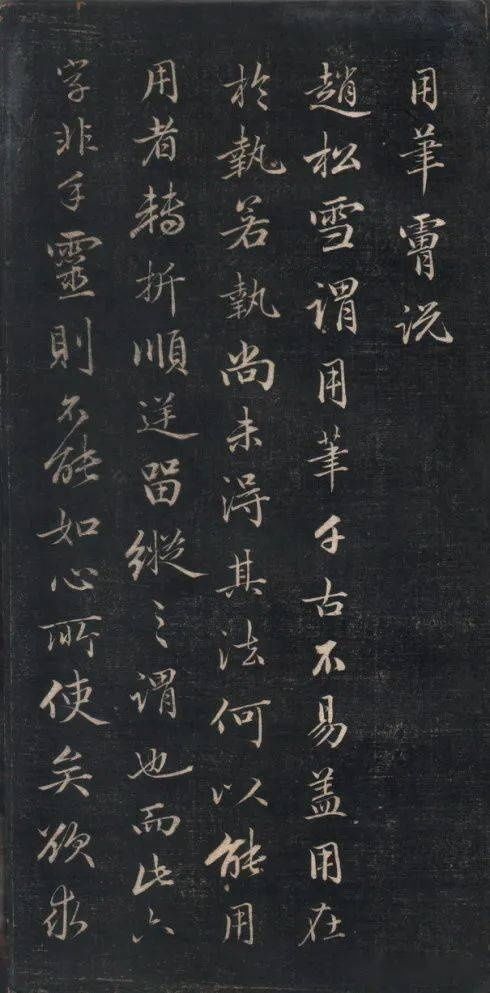 用筆膚説
趙松雪謂用筆千古不易蓋用在
於執若執尚未得其法何以能用
用者轉折順逆留縱之謂也而此六
字非手靈則不能如心所使矣欲求